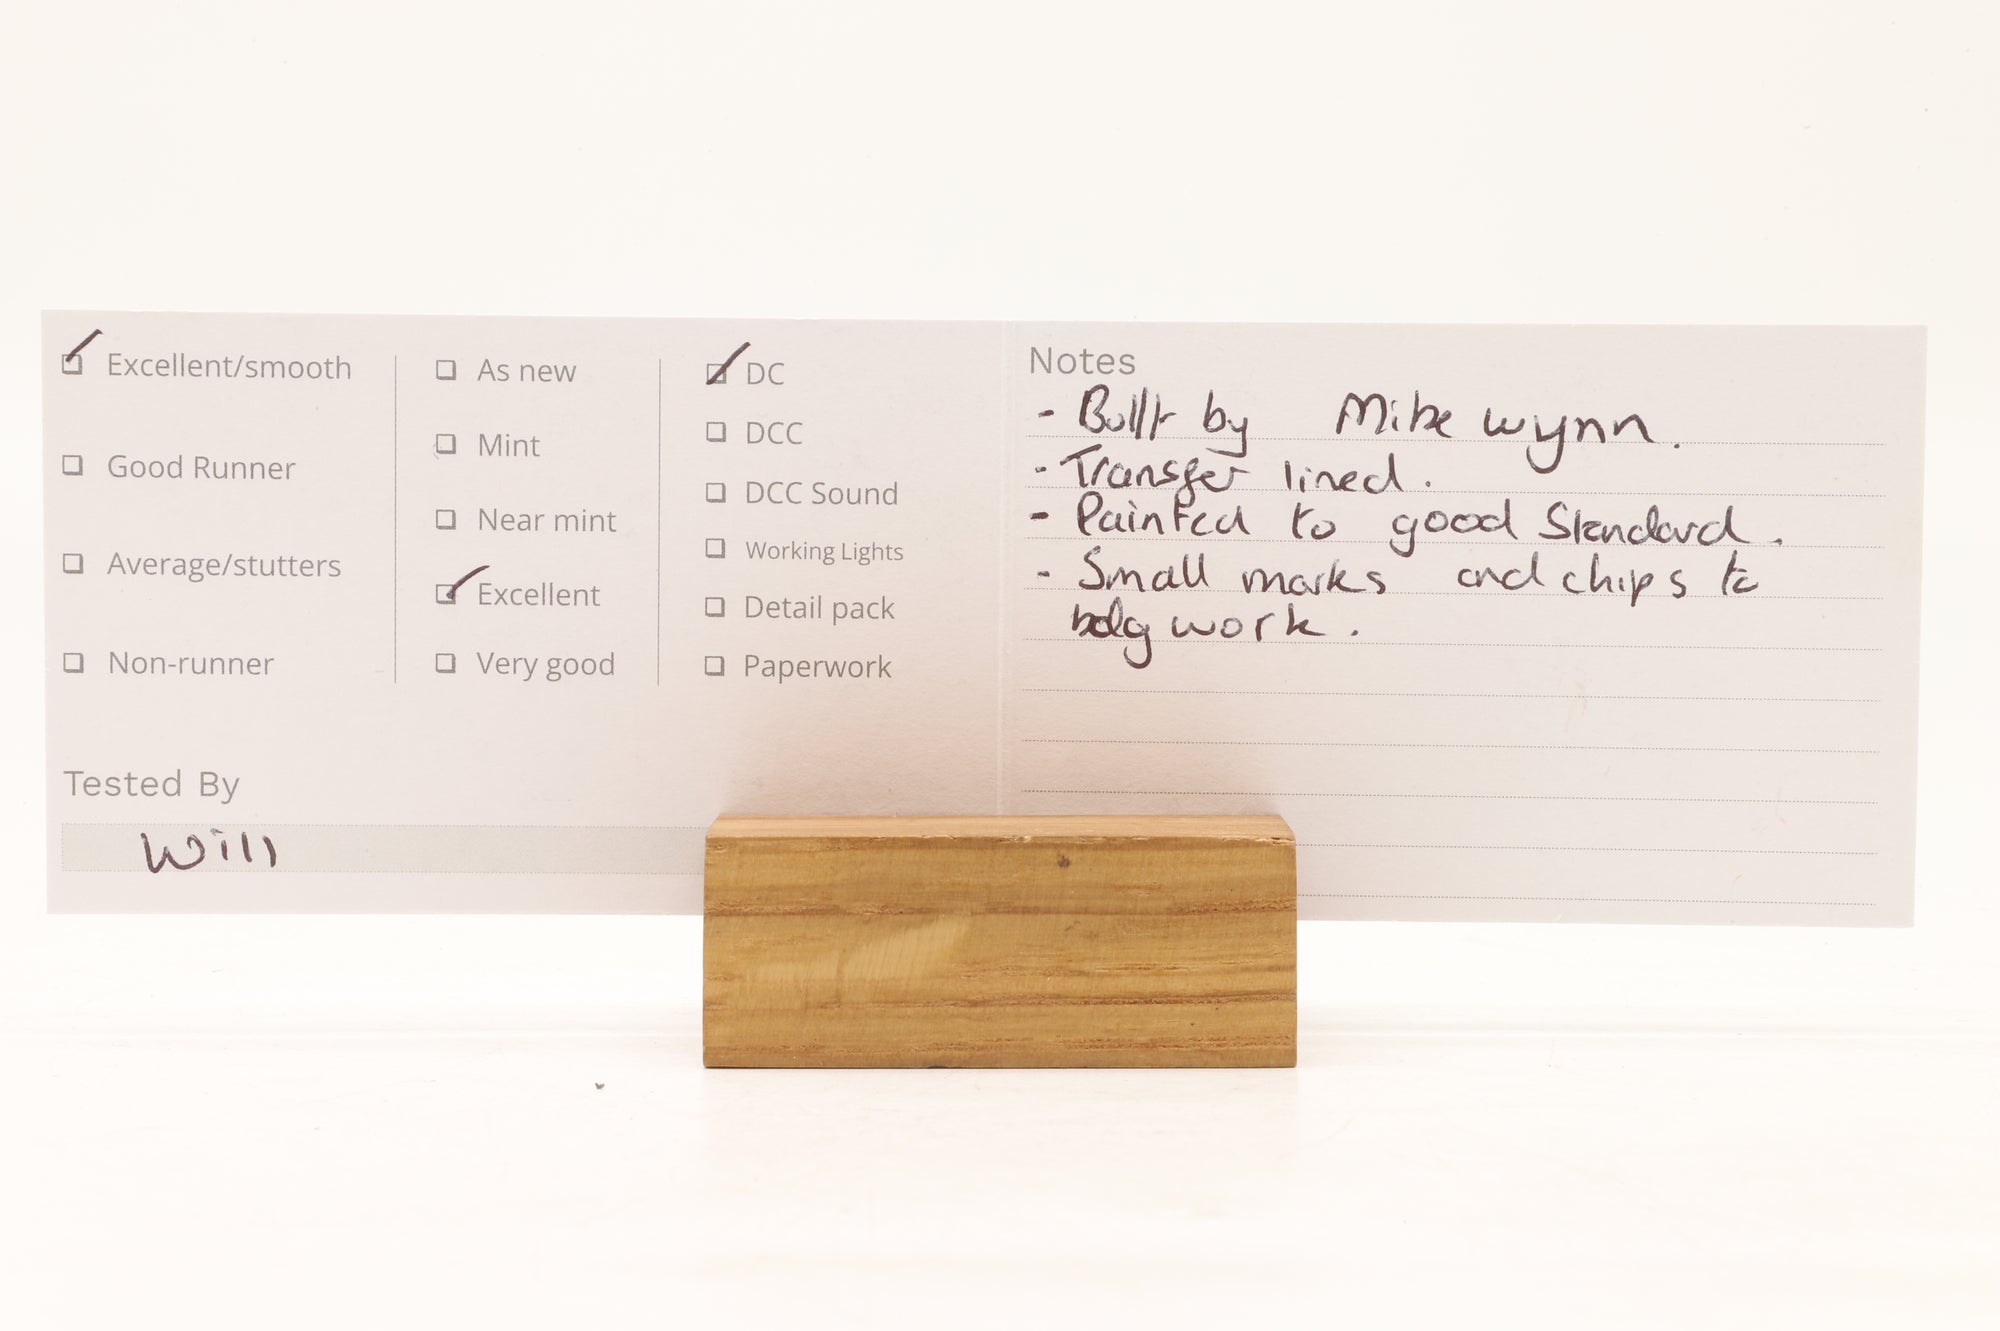 Excellent/smooth
Good Runner
Average/stutters
Non-runner
As new
Mint
Near mint
Excellent
Very good
DC
DCC
DCC Sound
Working Lights
Detail pack
Paperwork
Tested By
Will
Notes
- Built by Mike Wynn.
- Transfer lined.
- Painted to good Standard.
- Small marks and chips to
body work.